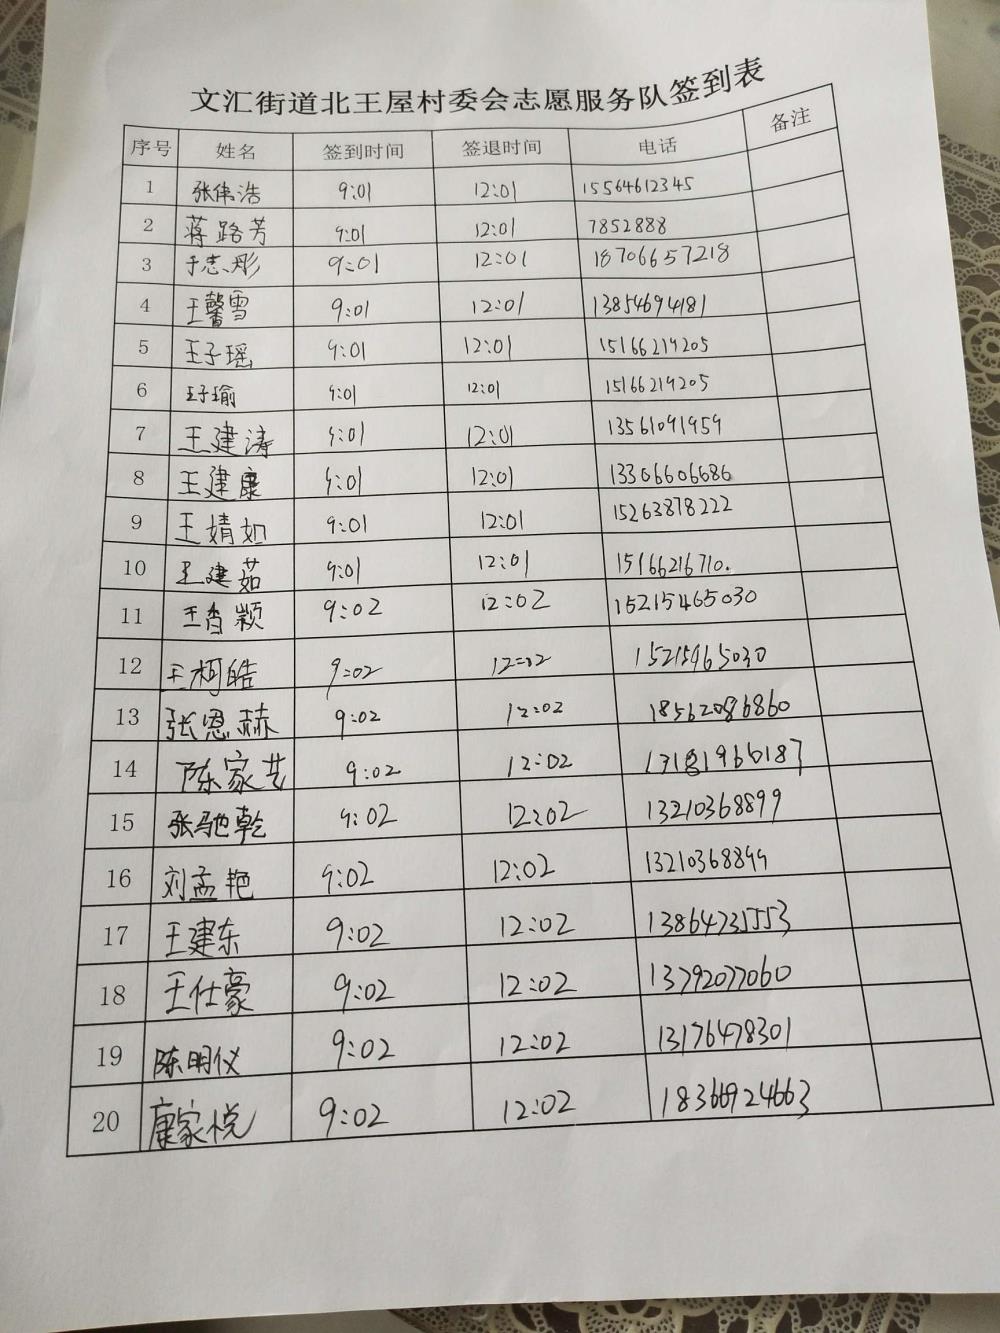 文汇街道北王屋村委会志愿服务队签到表
序号 姓名 签到时间 签退时间 电话 备注
1 张伟浩 9:01 12:01 15564612345
2 蒋路芳 9:01 12:01 7852888
3 于志彤 9:01 12:01 18706657218
4 王馨雪 9:01 12:01 13854694181
5 王子瑶 9:01 12:01 15166219205
6 王子瑜 9:01 12:01 15166219205
7 王建涛 9:01 12:01 13561091959
8 王建康 9:01 12:01 13306606686
9 王婧如 9:01 12:01 15263878222
10 王建茹 9:01 12:01 15166216710.
11 王香颖 9:02 12:02 15215465030
12 王柯皓 9:02 12:02 15215465030
13 张恩赫 9:02 12:02 18562086860
14 陈家艺 9:02 12:02 13181966187
15 张驰乾 9:02 12:02 13210368899
16 刘孟艳 9:02 12:02 13210368899
17 王建东 9:02 12:02 13864735553
18 王仕豪 9:02 12:02 13792077060
19 陈明仪 9:02 12:02 13176478301
20 康家悦 9:02 12:02 18366924663